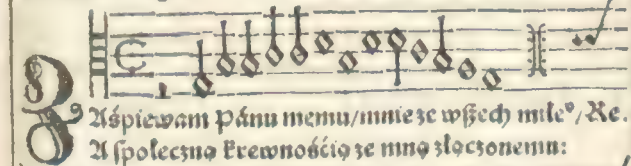 ZAśpiewam Pánu memu/mnie ze wſzech miłe⁹/Re.
A ſpołeczną krewnośćią ze mną złączonemu: